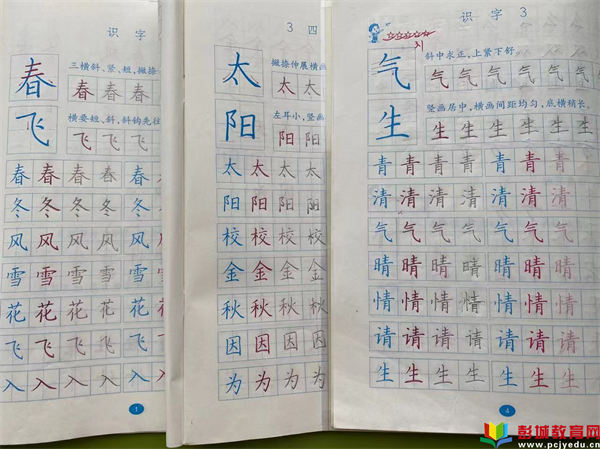 识字
春
三横斜、紧、短，撇捺
春春春
飞
横要短、斜，斜钩先往
飞飞飞
春春春春春春
冬冬冬冬冬冬
风风风风风风
雪雪雪雪雪雪
花花花花花花
飞飞飞飞飞飞
入入入入入入
1
3 四
太
撇捺伸展横画
太太
阳
左耳小，竖画
阳阳
太太太太
阳阳阳阳
校校校校
金金金金
秋秋秋秋
因因因因
为为为为
识字3
气
斜中求正，上紧下舒。
气气气气气气气
生
竖画居中，横画间距均匀，底横稍长。
生生生生生生生
青青青青青青青
清清清清清清清
气气气气气气气
晴晴晴晴晴晴晴
情情情情情情情
请请请请请请请
生生生生生生生
4
彭城教育网
www.pcjyedu.cn